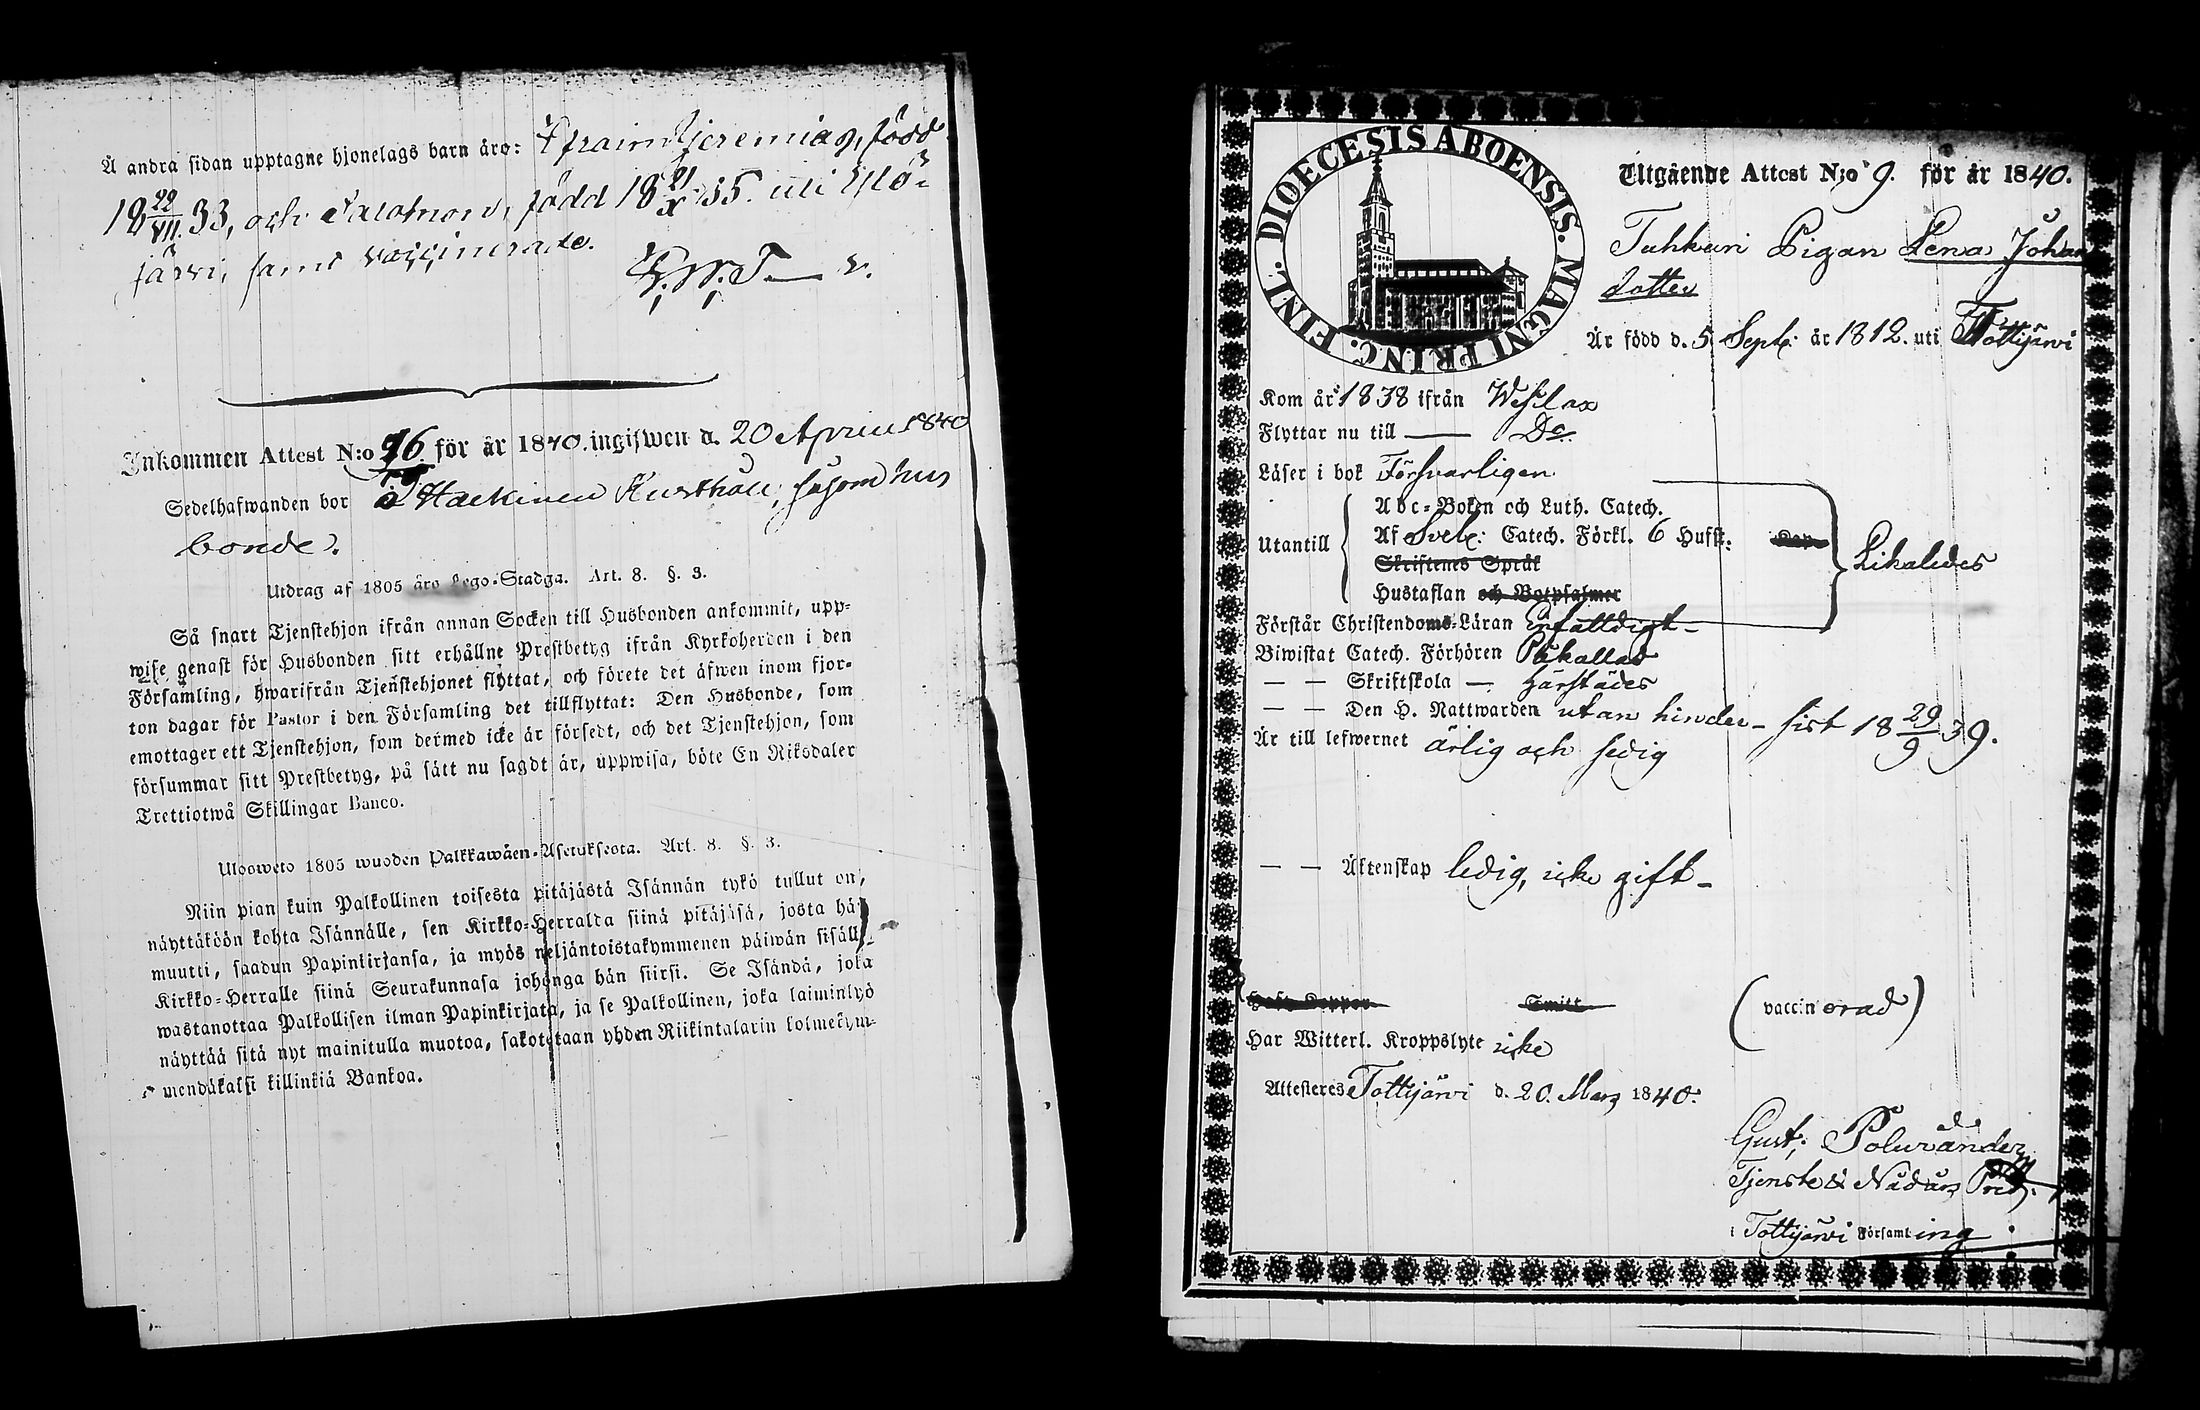 Å andra sidan upptagne hjonelags barn äro: Efraim Jjeremias, född
18 22/VII. 33, och Salomon, född 18 21/X 35. uti Ylö-
järvi, samt vaccinerade.
Inkommen Attest N:o 76. för år 1840. ingifwen d. 20 Aprill 1840
Sedelhafwanden bor i Hackinen Rusthåll, såsom hus
bonde.
Utdrag af 1805 års Lego-Stadga. Art. 8. §. 3.
Så snart Tjenstehjon ifrån annan Socken till Husbonden ankommit, upp-
wise genast för Husbonden sitt erhållne Prestbetyg ifrån Kyrkoherden i den
Församling, hwarifrån Tjenstehjonet flyttat, och förete det äfwen inom fjor-
ton dagar för Pastor i den Församling det tillflyttat: Den Husbonde, som
emottager ett Tjenstehjon, som dermed icke är försedt, och det Tjenstehjon, som
försummar sitt Prestbetyg, på sätt nu sagdt är, uppwisa, böte En Riksdaler
Trettiotwå Skillingar Banco.
Ulosweto 1805 wuoden Palkkawäen-Asetuksesta. Art. 8. §. 3.
Niin pian kuin Palkollinen toisesta pitäjästä Isännän tykö tullut on,
näyttäköön kohta Isännälle, sen Kirkko-Herralda siinä pitäjäsä, josta hän
muutti, saadun Papinkirjansa, ja myös neljäntoistakymmenen päiwän sisällä
Kirkko-Herralle siinä Seurakunnasa johonga hän siirsi. Se Isändä, joka
wastanottaa Palkollisen ilman Papinkirjata, ja se Palkollinen, joka laiminlyö
näyttää sitä nyt mainitulla muotoa, sakotetaan yhden Riikintalarin kolmekym-
mendäkaksi killinkiä Bankoa.
DIOECESIS ABOENSIS. MAGNI PRINC. FINL.
Utgående Attest N:o 9. för år 1840.
Tuhkuri Pigan Lena Johans
dotter
Är född d. 5 Sept. år 1812. uti Tottijärvi
Kom år 1838 ifrån Wesilax
Flyttar nu till — Do.
Läser i bok Försvarligen
Abc-Boken och Luth. Catech.
Utantill Af Sveb: Catech. Förkl. 6 Hufst: Kap. Likaledes
Skriftenes Språk
Hustaflan och Botpsalmer
Förstår Christendoms-Läran Enfaldigt -
Biwistat Catech. Förhören Påkallad
— — Skriftskola — härstädes
— — Den H. Nattwarden utan hinder - sist 18 29/9 39.
Är till lefwernet ärlig och sedig
— — Äktenskap ledig, icke gift -
Haft Koppor Smitt (vaccinerad)
Har Witterl. Kroppslyte icke
Attesteres Tottijärvi d. 20. Mars 1840.
Gust. Polviander
Tjenste & Nådårs Pred.
i Tottijärvi Församling